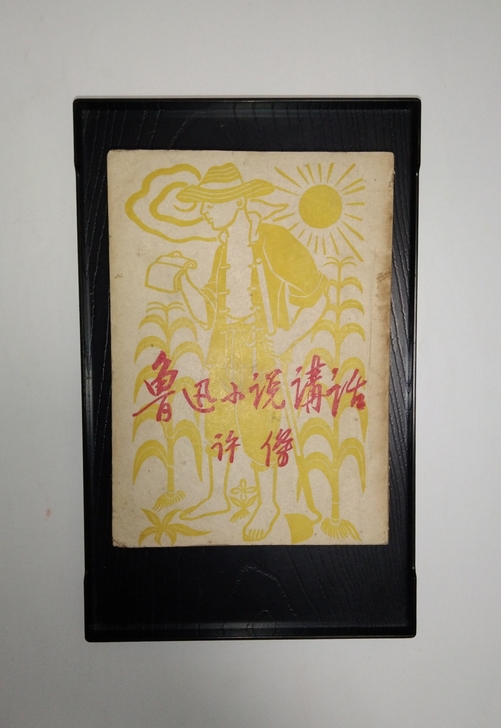 鲁迅小说講话
许傑